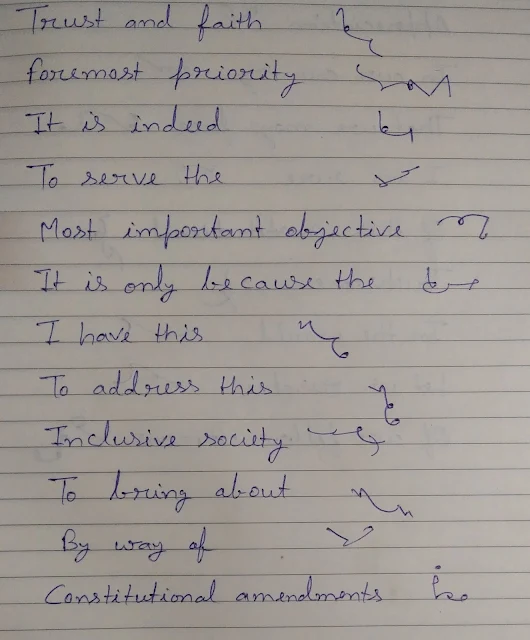 Trust and faith
foremost priority
It is indeed
To serve the
Most important objective
It is only because the
I have this
To address this
Inclusive society
To bring about
By way of
Constitutional amendments